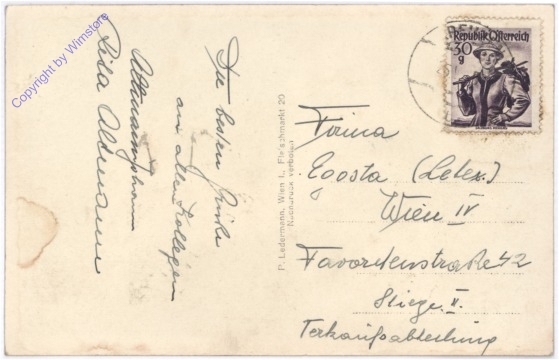 Copyright by Wimstore
Die besten Grüße
an allen Kollegen
Lisa Altmann
P. Ledermann, Wien I., Fleischmarkt 20
Nachdruck verboten
Republik Österreich
30
g
Firma
Egosta (Letex.)
Wien IV
Favoritenstraße 42
Stiege II.
Verkaufsabteilung